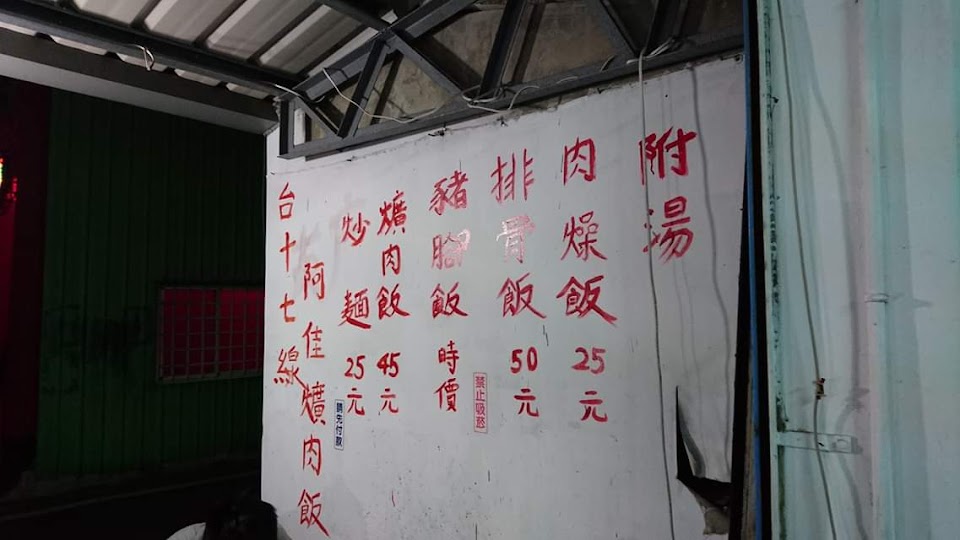 附湯
肉燥飯 25元
排骨飯 50元
禁止吸菸
豬腳飯 時價
爌肉飯 45元
炒麵 25元
請先付款
阿佳爌肉飯
台十七線